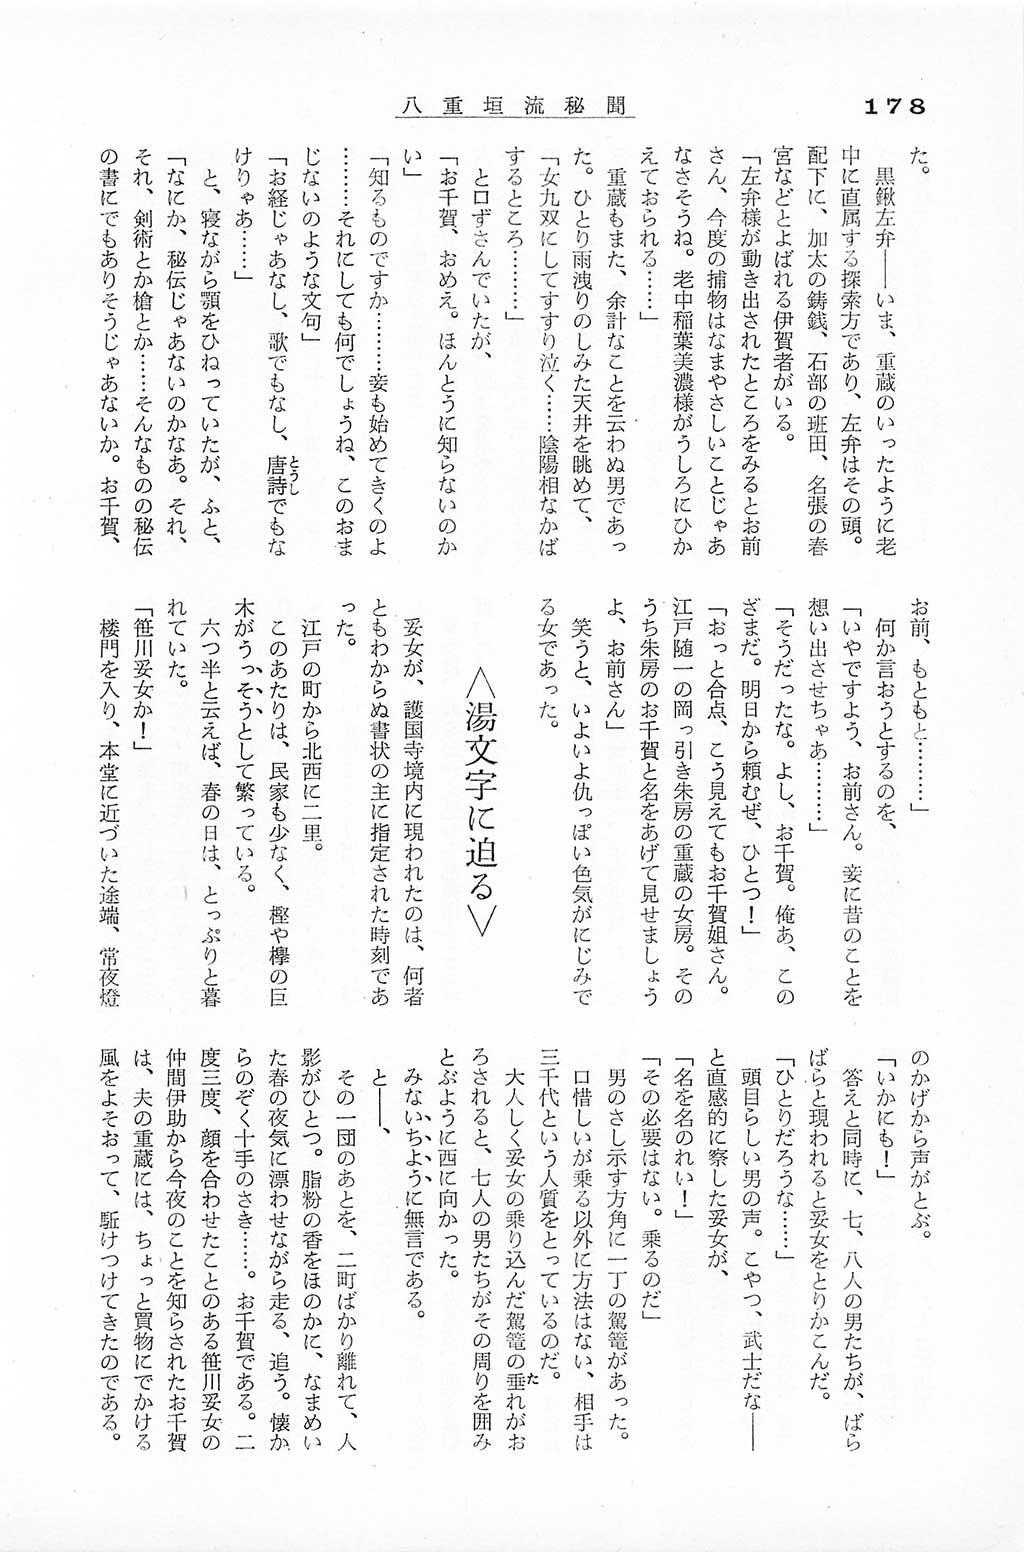 178
八重垣流秘聞
た。
　黒鍬左弁――いま、重蔵のいったように老
中に直属する探索方であり、左弁はその頭。
配下に、加太の鋳銭、石部の班田、名張の春
宮などとよばれる伊賀者がいる。
「左弁様が動き出されたところをみるとお前
さん、今度の捕物はなまやさしいことじゃあ
なさそうね。老中稲葉美濃様がうしろにひか
えておられる……」
　重蔵もまた、余計なことを云わぬ男であっ
た。ひとり雨洩りのしみた天井を眺めて、
「女九双にしてすすり泣く……陰陽相なかば
するところ………」
　と口ずさんでいたが、
「お千賀、おめえ。ほんとうに知らないのか
い」
「知るものですか………妾も始めてきくのよ
………それにしても何でしょうね、このおま
じないのような文句」
「お経じゃあなし、歌でもなし、唐詩でもな
けりゃあ……」
　と、寝ながら顎をひねっていたが、ふと、
「なにか、秘伝じゃあないのかなあ。それ、
それ、剣術とか槍とか……そんなものの秘伝
の書にでもありそうじゃあないか。お千賀、
お前、もともと………」
　何か言おうとするのを、
「いやですよう、お前さん。妾に昔のことを
想い出させちゃあ………」
「そうだったな。よし、お千賀。俺あ、この
ざまだ。明日から頼むぜ、ひとつ！」
「おっと合点、こう見えてもお千賀姐さん。
江戸随一の岡っ引き朱房の重蔵の女房。その
うち朱房のお千賀と名をあげて見せましょう
よ、お前さん」
　笑うと、いよいよ仇っぽい色気がにじみで
る女であった。
＜湯文字に迫る＞
　妥女が、護国寺境内に現われたのは、何者
ともわからぬ書状の主に指定された時刻であ
った。
　江戸の町から北西に二里。
　このあたりは、民家も少なく、樫や欅の巨
木がうっそうとして繁っている。
　六つ半と云えば、春の日は、とっぷりと暮
れていた。
「笹川妥女か！」
　楼門を入り、本堂に近づいた途端、常夜燈
のかげから声がとぶ。
「いかにも！」
　答えと同時に、七、八人の男たちが、ばら
ばらと現われると妥女をとりかこんだ。
「ひとりだろうな……」
　頭目らしい男の声。こやつ、武士だな――
と直感的に察した妥女が、
「名を名のれい！」
「その必要はない。乗るのだ」
　男のさし示す方角に一丁の駕篭があった。
　口惜しいが乗る以外に方法はない、相手は
三千代という人質をとっているのだ。
　大人しく妥女の乗り込んだ駕篭の垂れがお
ろされると、七人の男たちがその周りを囲み
とぶように西に向かった。
　みないちように無言である。
　と――、
　その一団のあとを、二町ばかり離れて、人
影がひとつ。脂粉の香をほのかに、なまめい
た春の夜気に漂わせながら走る、追う。懐か
らのぞく十手のさき……。お千賀である。二
度三度、顔を合わせたことのある笹川妥女の
仲間伊助から今夜のことを知らされたお千賀
は、夫の重蔵には、ちょっと買物にでかける
風をよそおって、駈けつけてきたのである。